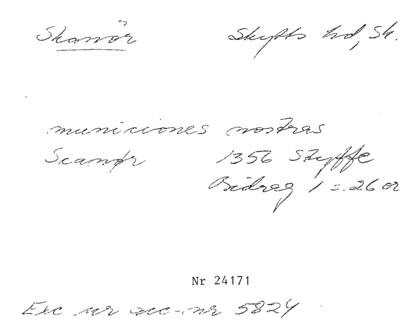 Skanör Skytts hd, Sk.
municiones nostras
Scanør 1356 Styffe
Bidrag 1 s. 26 or
Nr 24171
Exc ur acc-nr 5824